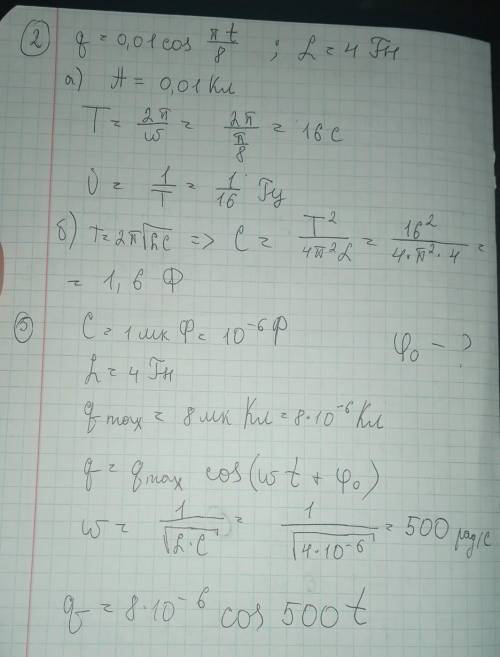 ② q = 0,01 cos πt/8 ; L = 4 Гн
а) A = 0,01 Кл
T = 2π/ω = 2π/(π/8) = 16 с
ν = 1/T = 1/16 Гц
б) T = 2π√LC => C = T²/4π²L = 16²/4·π²·4 =
= 1,6 Ф
⑤ C = 1 мкФ = 10⁻⁶ Ф φ₀ - ?
L = 4 Гн
q max = 8 мк Кл = 8·10⁻⁶ Кл
q = q max cos(ωt + φ₀)
ω = 1/√L·C = 1/√4·10⁻⁶ = 500 рад/с
q = 8·10⁻⁶ cos 500t